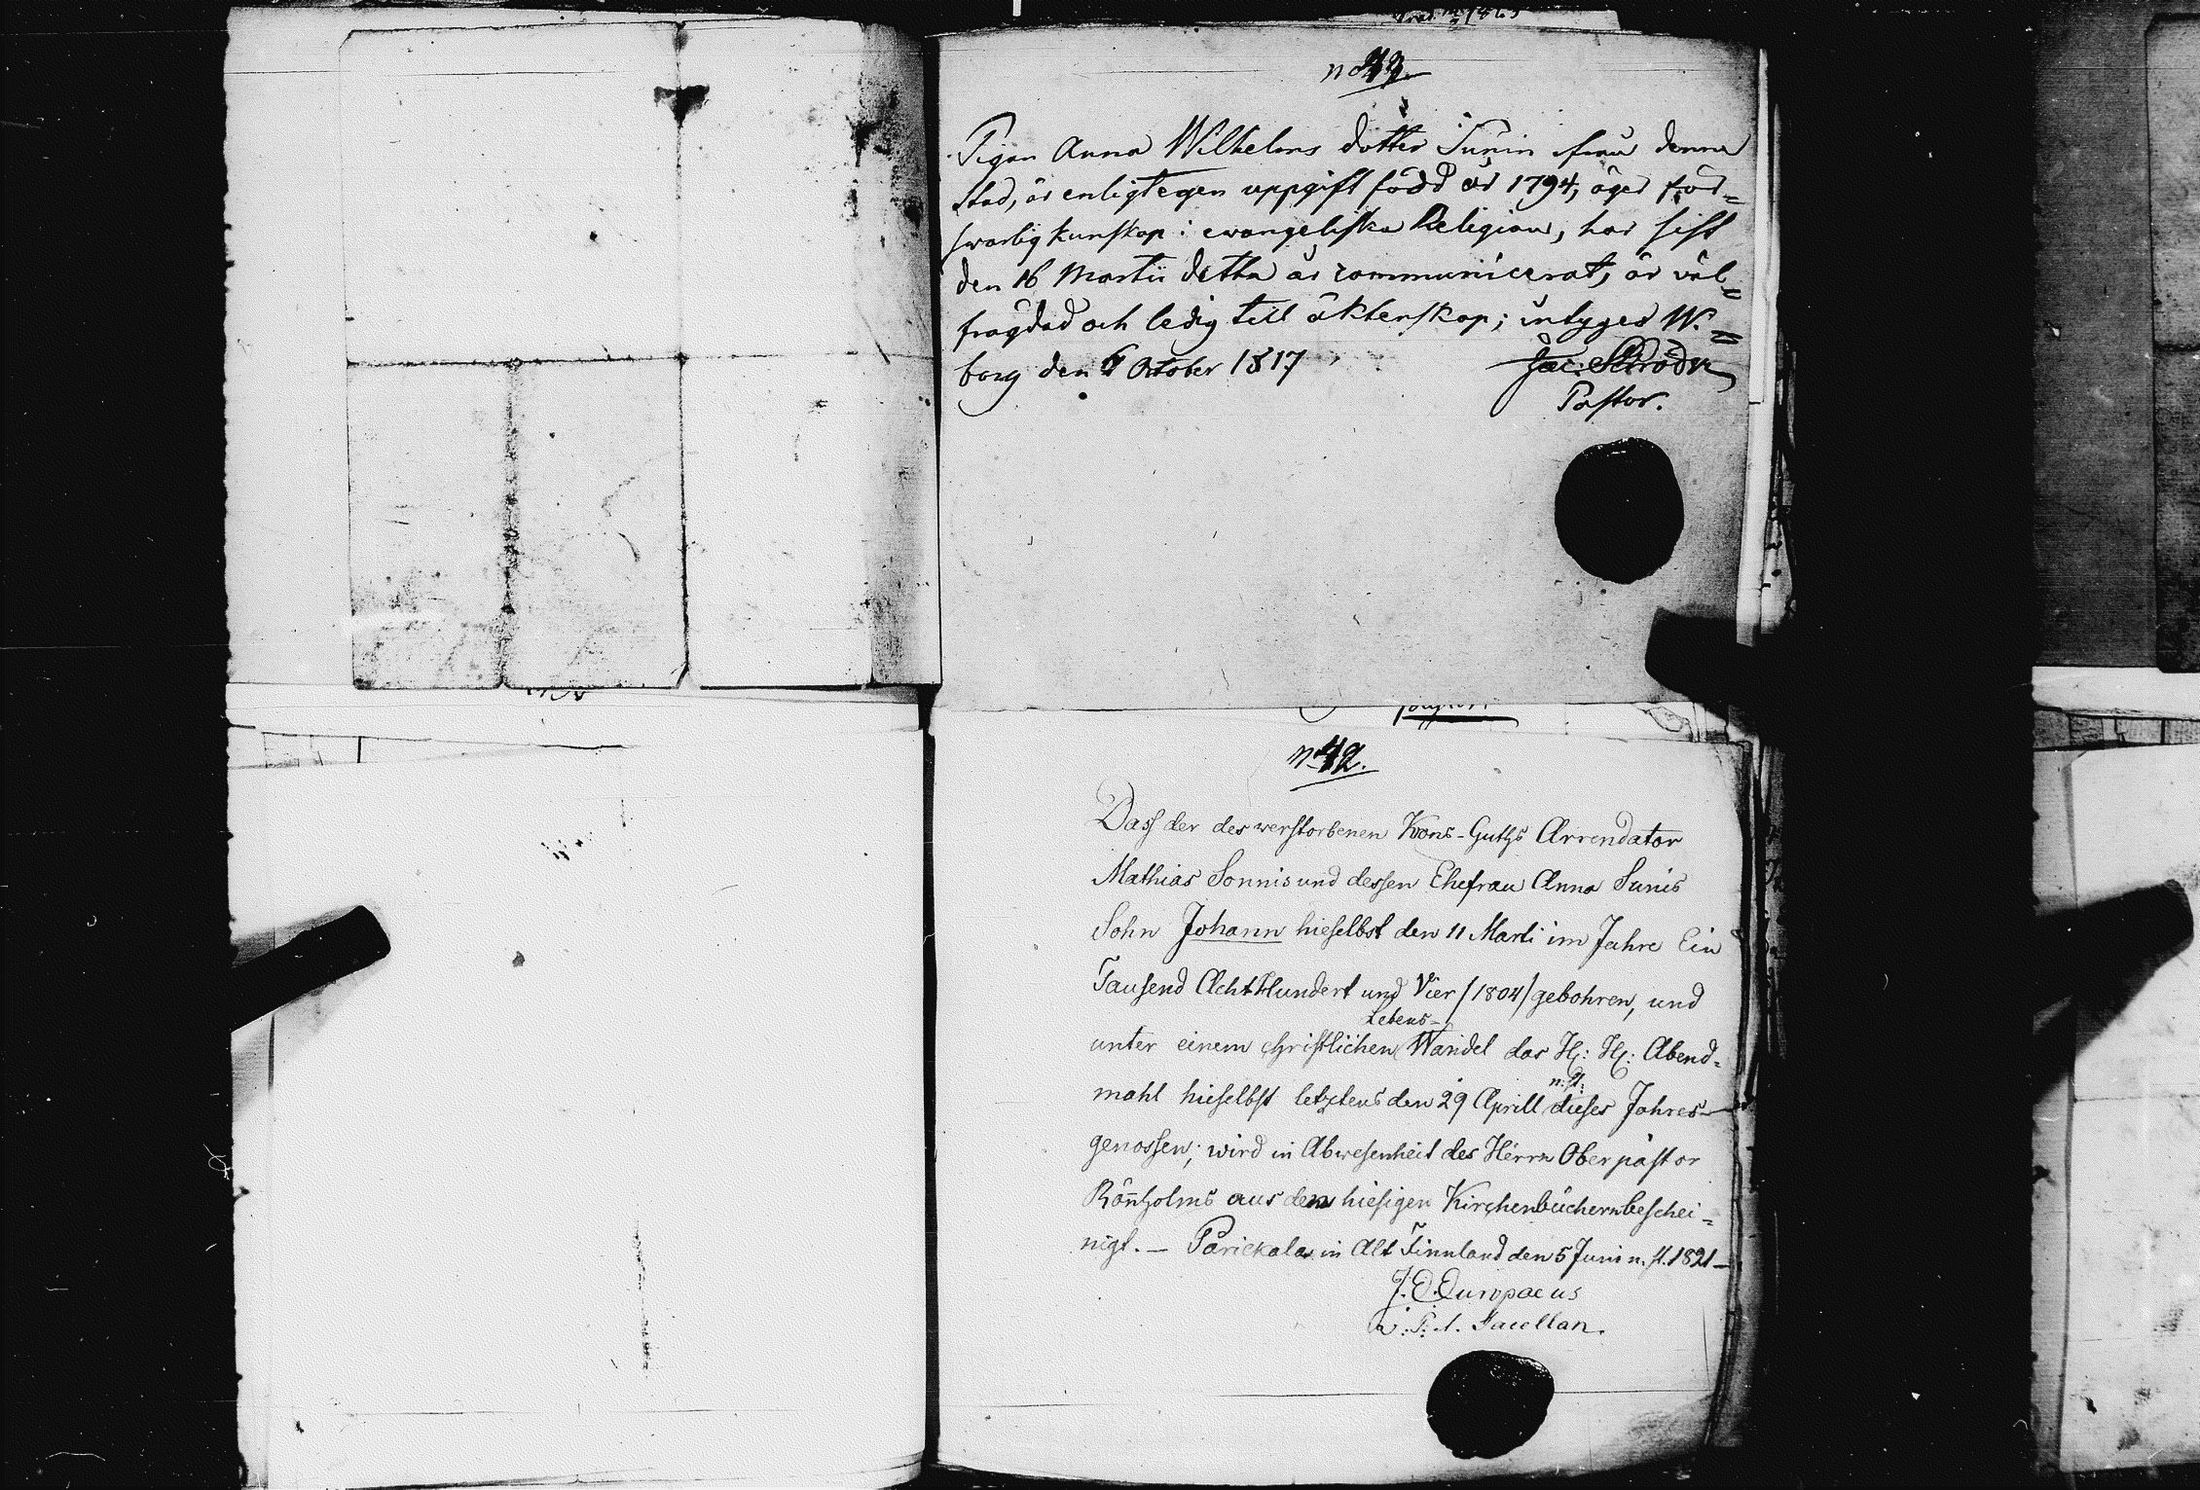 no 43.
Pigan Anna Wilhelms dotter Sunin från denna
stad, är enligt egen uppgift född år 1794, äger för=
swarlig kunskap i evangeliska Religion, har sist
den 16 Martii detta år communicerat, är väl=
frägdad och ledig till äktenskap; intyges W.=
borg den 6 October 1817
Jac: Schröder
Pastor.
no 42.
Dass der des verstorbenen Krons-Guths Arrendator
Mathias Sonnis und dessen Ehefrau Anna Sunis
Sohn Johann hieselbst den 11 Marti im Jahre Ein
Tausend Acht Hundert und Vier /1804/ gebohren, und
Lebens-
unter einem christlichen Wandel das H: H: Abend=
n: st:
mahl hieselbst letztens den 29 Aprill dieses Jahres
genossen; wird in Abwesenheit des Herrn Oberpastor
Rönholms aus den hiesigen Kirchenbüchern beschei=
nigt. — Parickala in Alt Finnland den 5 Juni n. st. 1821 —
J. E. Europaeus
Sacellan.